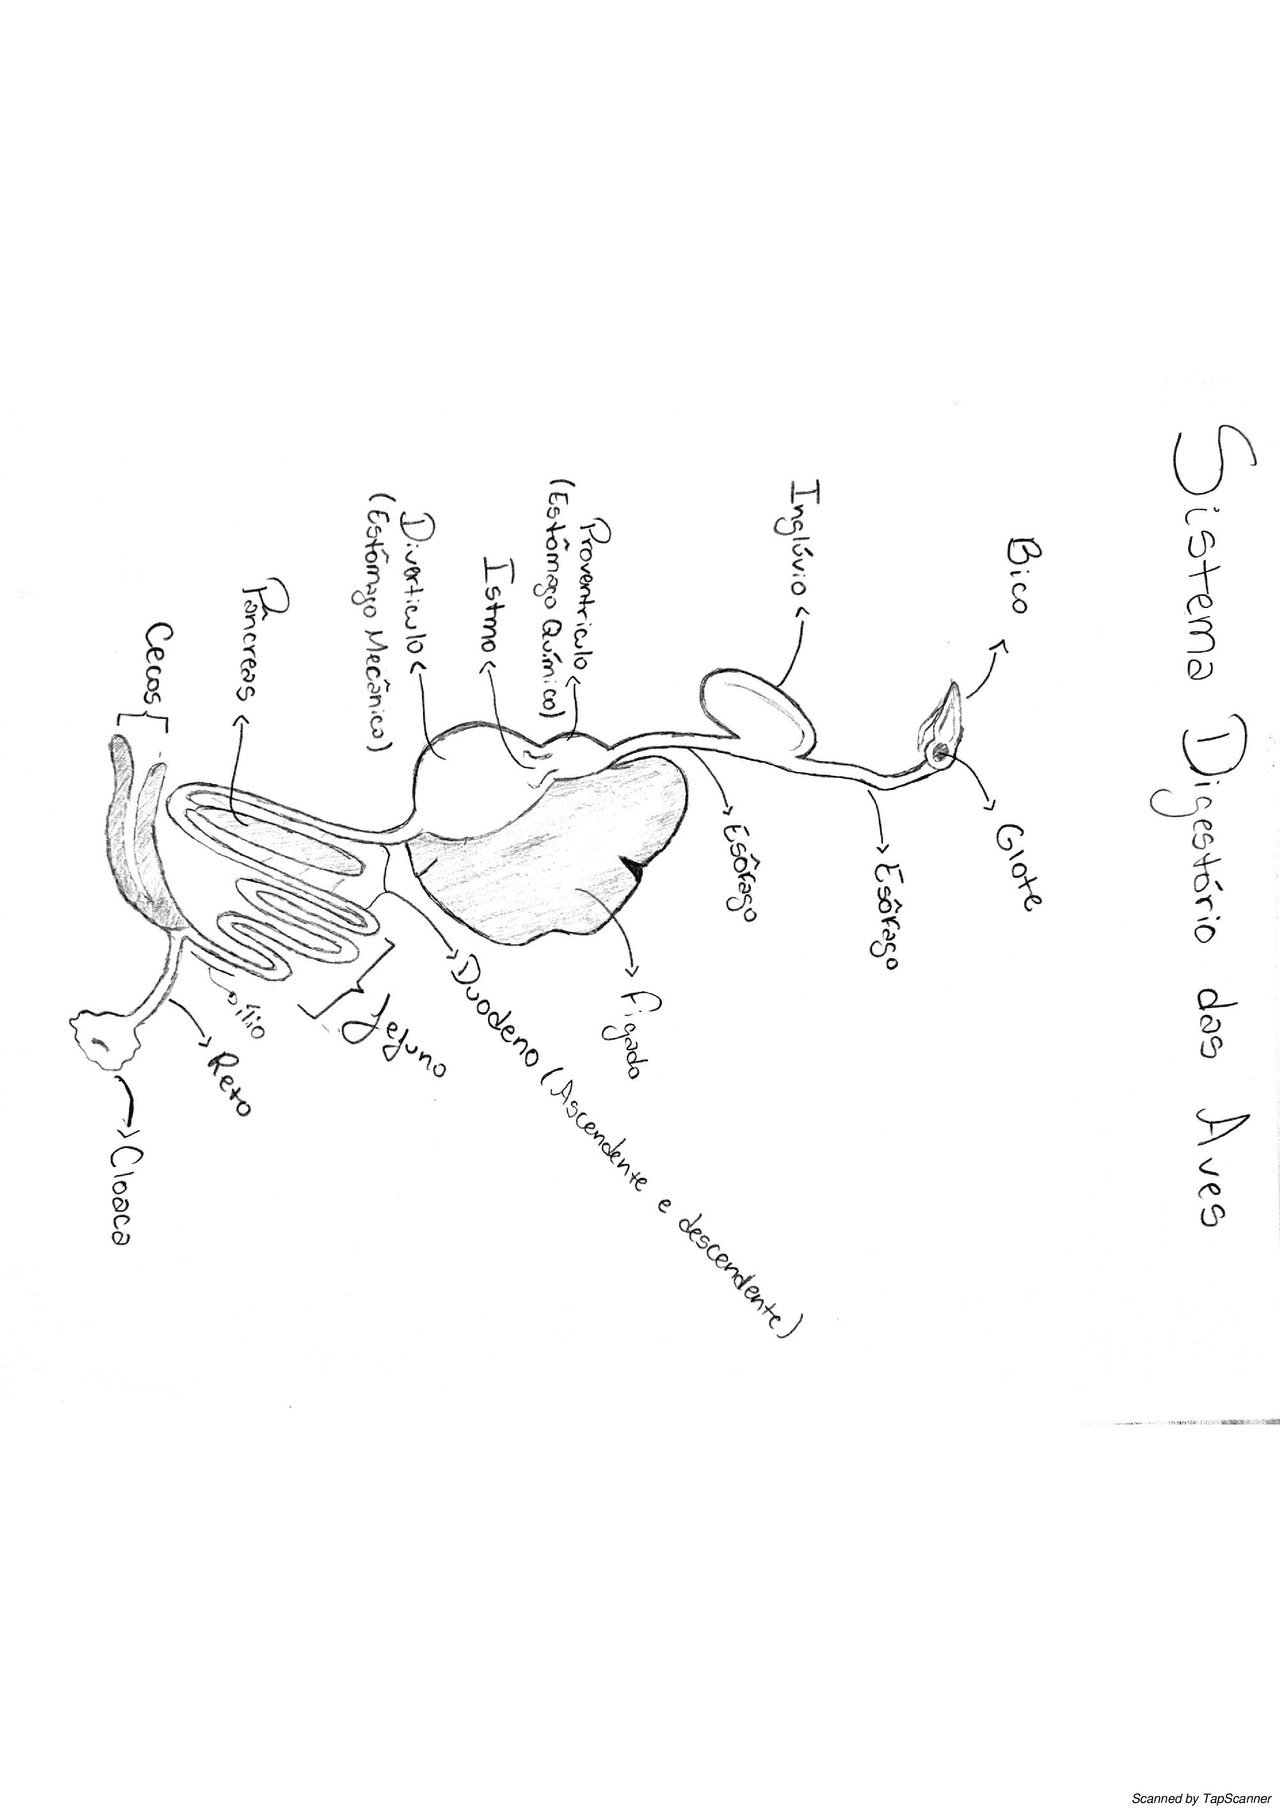 Sistema Digestório das Aves
Bico
Glote
Esôfago
Inglúvio
Esôfago
Proventriculo
(Estômago Químico)
Istmo
Fígado
Diverticulo
(Estômago Mecânico)
Duodeno (Ascendente e descendente)
Pâncreas
Jejuno
Cecos
ílio
Reto
Cloaca
Scanned by TapScanner